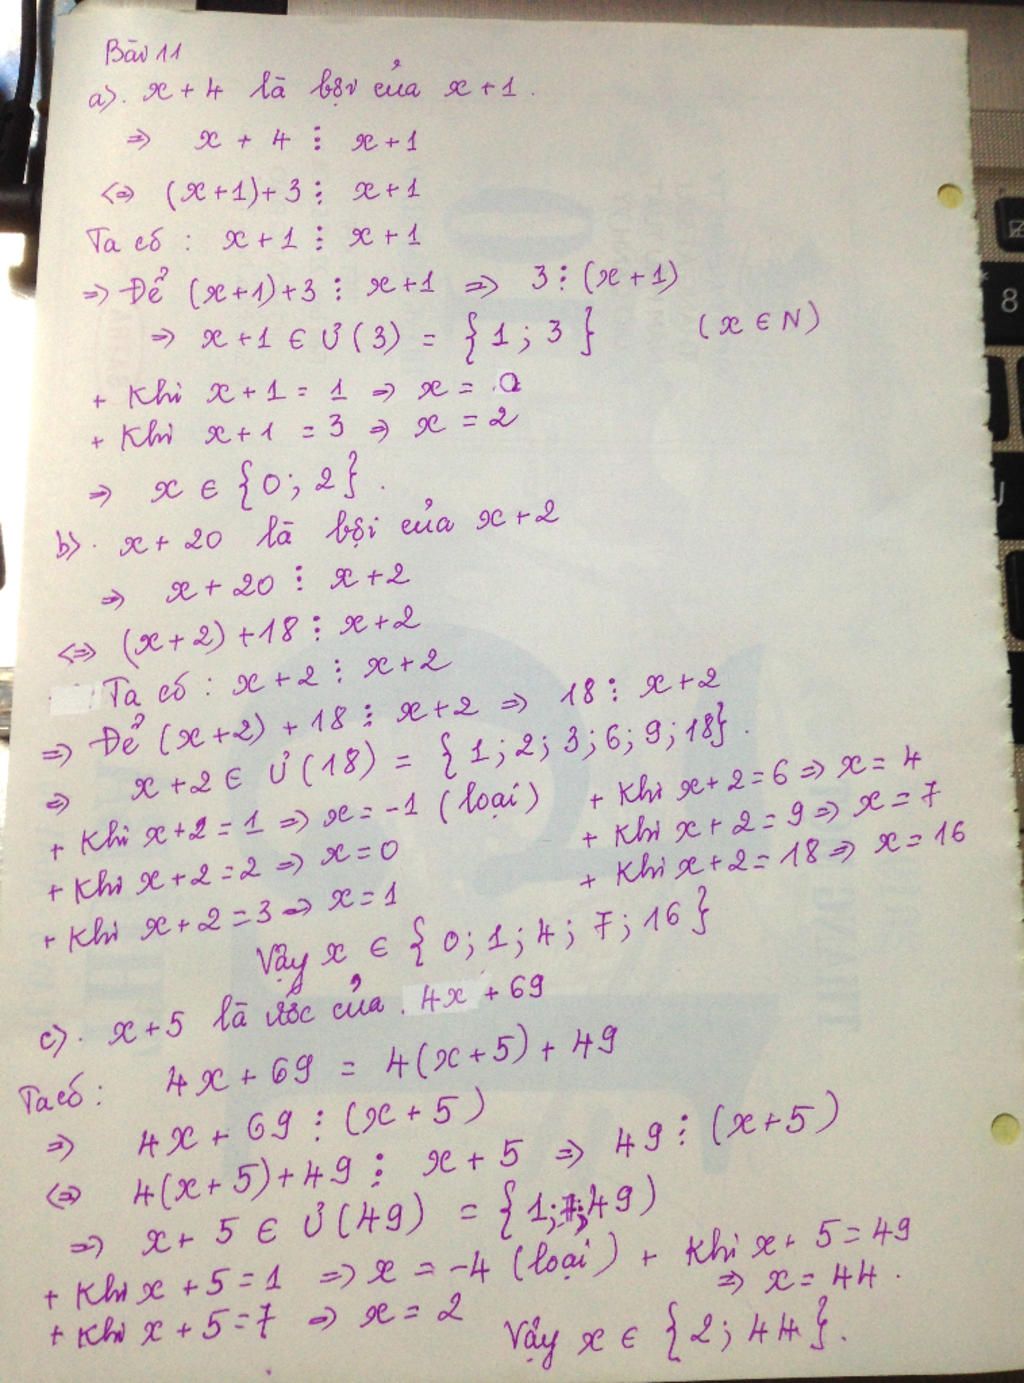 Bài 11
a). x + 4 là bội của x + 1.
⇒ x + 4 ⋮ x + 1
⇔ (x+1) + 3 ⋮ x + 1
Ta có : x + 1 ⋮ x + 1
⇒ Để (x+1) + 3 ⋮ x + 1 ⇒ 3 ⋮ (x + 1)
⇒ x + 1 ∈ Ư(3) = { 1 ; 3 } (x ∈ N)
+ Khi x + 1 = 1 ⇒ x = 0
+ Khi x + 1 = 3 ⇒ x = 2
⇒ x ∈ { 0 ; 2 }.
b). x + 20 là bội của x + 2
⇒ x + 20 ⋮ x + 2
⇔ (x + 2) + 18 ⋮ x + 2
Ta có : x + 2 ⋮ x + 2
⇒ Để (x+2) + 18 ⋮ x + 2 ⇒ 18 ⋮ x + 2
⇒ x + 2 ∈ Ư(18) = { 1 ; 2 ; 3 ; 6 ; 9 ; 18 }.
+ Khi x + 2 = 1 ⇒ x = -1 (loại)
+ Khi x + 2 = 2 ⇒ x = 0
+ Khi x + 2 = 3 ⇒ x = 1
+ Khi x + 2 = 6 ⇒ x = 4
+ Khi x + 2 = 9 ⇒ x = 7
+ Khi x + 2 = 18 ⇒ x = 16
Vậy x ∈ { 0 ; 1 ; 4 ; 7 ; 16 }
c). x + 5 là ước của . 4x + 69
Ta có : 4x + 69 = 4(x + 5) + 49
⇒ 4x + 69 ⋮ (x + 5)
⇔ 4(x + 5) + 49 ⋮ x + 5 ⇒ 49 ⋮ (x + 5)
⇒ x + 5 ∈ Ư(49) = { 1 ; 7 ; 49 )
+ Khi x + 5 = 1 ⇒ x = -4 (loại) + Khi x + 5 = 49
⇒ x = 44 .
+ Khi x + 5 = 7 ⇒ x = 2
Vậy x ∈ { 2 ; 44 }.
8